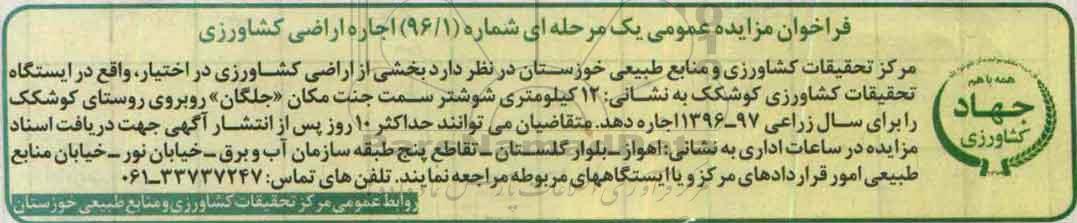 فراخوان مزایده عمومی یک مرحله ای شماره (۹۶/۱) اجاره اراضی کشاورزی
مرکز تحقیقات کشاورزی و منابع طبیعی خوزستان در نظر دارد بخشی از اراضی کشاورزی در اختیار، واقع در ایستگاه
تحقیقات کشاورزی کوشکک به نشانی: ۱۲ کیلومتری شوشتر سمت جنت مکان «جلگان» روبروی روستای کوشکک
را برای سال زراعی ۹۷ـ۱۳۹۶ اجاره دهد. متقاضیان می توانند حداکثر ۱۰ روز پس از انتشار آگهی جهت دریافت اسناد
مزایده در ساعات اداری به نشانی: اهواز ـ بلوار گلستان ـ تقاطع پنج طبقه سازمان آب و برق ـ خیابان نور ـ خیابان منابع
طبیعی امور قراردادهای مرکز و یا ایستگاههای مربوطه مراجعه نمایند. تلفن های تماس: ۳۳۷۳۷۲۴۷ـ۰۶۱
روابط عمومی مرکز تحقیقات کشاورزی و منابع طبیعی خوزستان
همه با هم
جهاد
کشاورزی